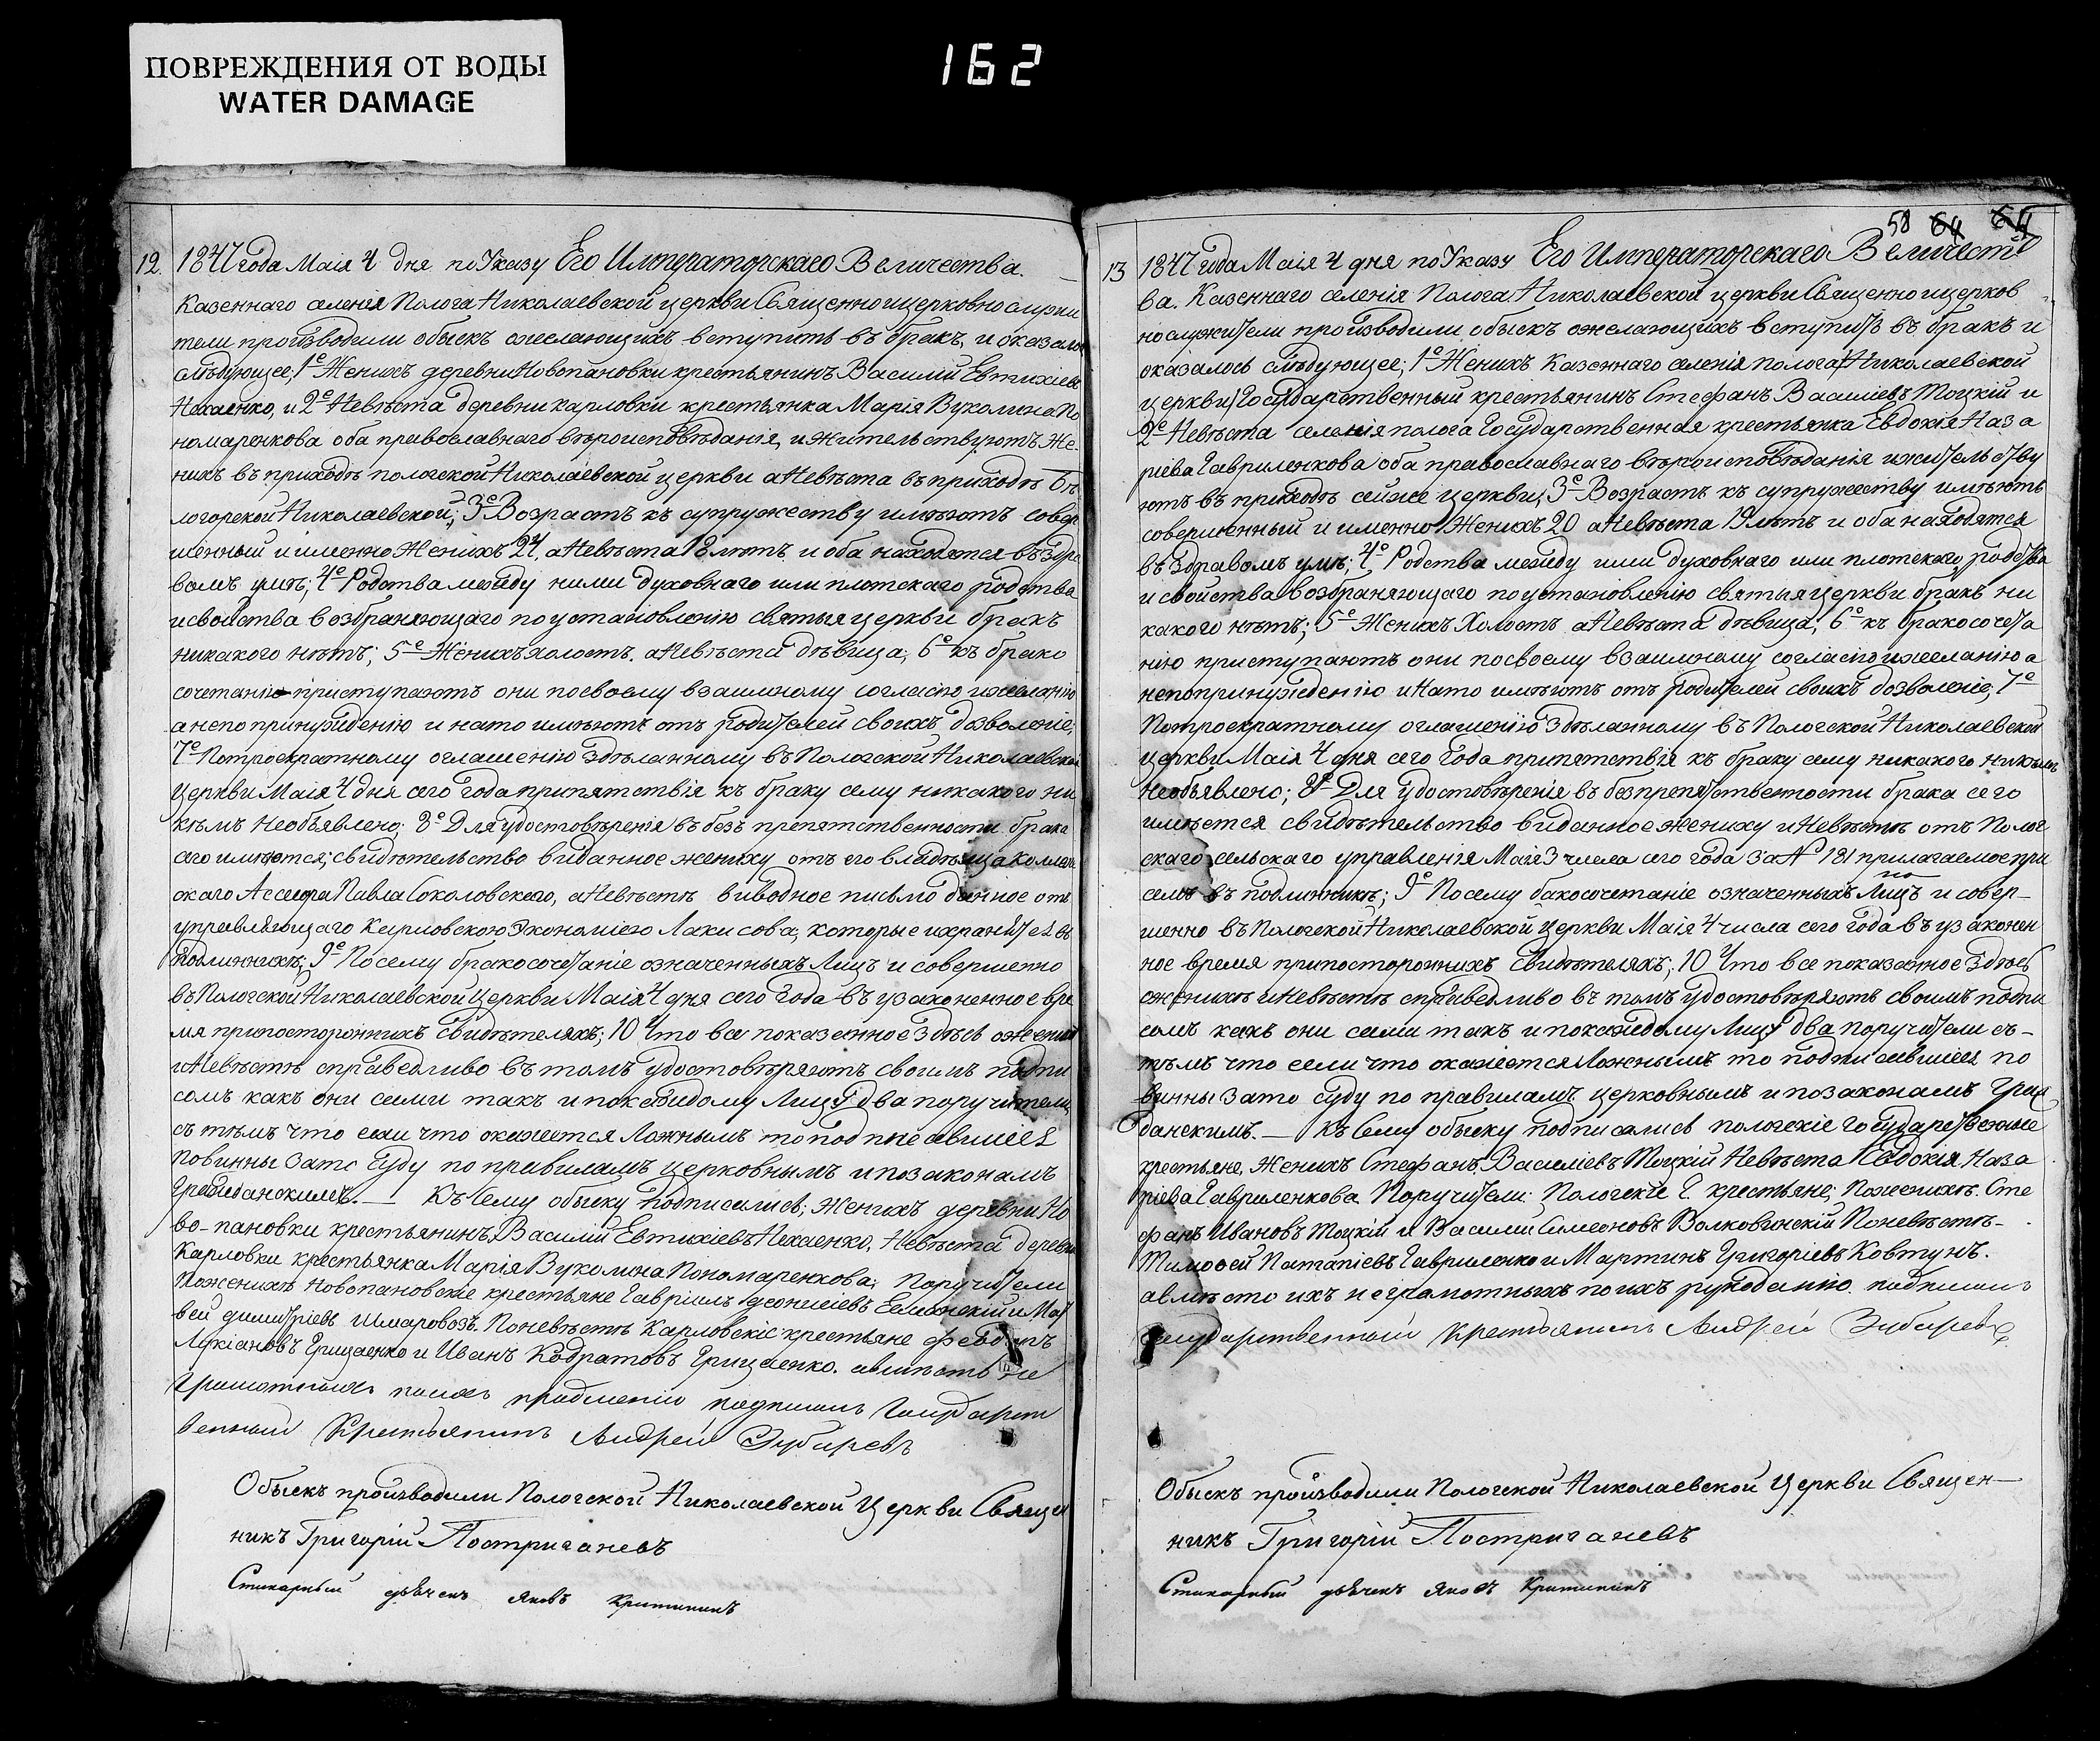 ПОВРЕЖДЕНИЯ ОТ ВОДЫ
WATER DAMAGE
162
12. 1847 года Маія 4 дня по Указу Его Императорскаго Величества.
Казеннаго селенія Полога Николаевской церкви Священно и церковно служи
тели производили обыскъ ожелающихъ вступить въ бракъ, и оказалось
слѣдующее; 1е Женихъ деревни Новопановки крестьянинъ Василій Евтихіевъ
Нехаенко, и 2е Невѣста деревни Карловки крестьянка Марія Вуколина По
номаренкова оба православнаго вѣроисповѣданія, и жительствуютъ Же-
нихъ въ приходѣ пологской Николаевской церкви а Невѣста въ приходѣ Бѣ
логорской Николаевской; 3е Возрастъ къ супружеству имѣютъ совер
шенный и именно Женихъ 24, а Невѣста лѣтъ и оба находятся въ здра
вомъ умѣ; 4е Родства между ними духовнаго или плотскаго родства
и свойства возбраняющаго по установленію святыя церкви бракъ
никакого нѣтъ; 5е Женихъ холостъ, а Невѣста дѣвица; 6е къ брако
сочетанію приступаютъ они по своему взаимному согласію и желанію
а не по принужденію и на то имѣютъ отъ родителей своихъ дозволеніе;
7е По троекратному оглашенію здѣланному въ Пологской Николаевской
Церкви Маія 4 дня сего года припятствія къ браку сему никакого ни
кѣмъ необъявлено; 8е Для удостовѣренія въ безъ препятственности брака
сего имѣются; свидѣтельство виданное жениху отъ его владѣльца Коллеж
скаго Ассесора Павла Соколовскаго, а Невѣстѣ виводное письмо данное отъ
управляющаго Карловскою Экономіею Лакисова, которые и хранятся въ
подлинникѣ; 9е Посему бракосочетаніе означенныхъ Лицъ и совершенно
въ Пологской Николаевской Церкви Маія 4 дня сего года въ узаконенное вре
мя припосторонникъ Свидѣтеляхъ; 10 Что все показанное здѣсь о женихѣ
и Невѣстѣ справедливо въ томъ удостовѣряютъ своимъ подпи
сомъ какъ они сами такъ и по каждому Лицу два поручители
съ тѣмъ что если что окажется Ложнымъ то подписавшіеся
повинны зато Суду по правиламъ церковнымъ и по законамъ
Гражданскимъ. — Къ Сему обыску подписались; Женихъ деревни Но
во-пановки крестьянинъ Василій Евтихіевъ Нехаенко, Невѣста деревни
Карловки крестьянка Марія Вуколина Пономаренкова; Поручители
по женихѣ Новопановскіе крестьяне Гавріилъ и Мат
вей Димитріевъ Шмаровозъ. По невѣстѣ Карловскіе крестьяне
Лукіановъ Грицаенко и Иванъ Кодратовъ Грицаенко. а вмѣсто не
грамотныхъ подписалъ Государст
венный Крестьянинъ Андрей Зубиревъ
Обыскъ производили Пологской Николаевской Церкви Священ
никъ Григорій Постригачевъ
Стихарный дьячекъ Яковъ Критининъ
58 64 64
13 1847 года Маія 4 дня по Указу Его Императорскаго Величест
ва. Казеннаго селенія Полога Николаевской церкви Священно и церков
но служители производили обыскъ ожелающихъ вступить въ бракъ и
оказалось слѣдующее; 1е Женихъ Казеннаго селенія полога Николаевской
церкви Государственный крестьянинъ Стефанъ Василіевъ Тоцкій и
2е Невѣста селенія полога Государственная крестьянка Евдокія Наза
ріева Гавриленкова оба православнаго вѣроисповѣданія и жительству
ютъ въ приходѣ сейже церкви; 3е Возрастъ къ супружеству имѣютъ
совершенный и именно Женихъ 20 а Невѣста 19 лѣтъ и оба находятся
въ здравомъ умѣ; 4е Родства между ими духовнаго или плотскаго родства
и свойства возбраняющаго по установленію святыя церкви бракъ ни
какого нѣтъ; 5е Женихъ Холостъ а Невѣста дѣвица; 6е къ бракосочета
нію приступаютъ они по своему взаимному согласію и желанію а
не по принужденію и на то имѣютъ отъ родителей своихъ дозволеніе; 7е
По троекратному оглашенію здѣланному въ Пологской Николаевской
церкви Маія 4 дня сего года припятствія къ браку сему никакого никѣмъ
необъявлено; 8е Для удостовѣренія въ безпрепятственности брака сего
имѣется свидѣтельство виданное жениху и Невѣстѣ отъ Полог
скаго сельскаго управленія Маія 3 числа сего года за № 181 прилагаемое при
семъ въ подлинникѣ; 9е Посему бакосочетаніе означенныхъ Лицъ и совер-
шенно въ Пологской Николаевской Церкви Маія 4 числа сего года въ узаконен
ное время припосторонникъ Свидѣтеляхъ; 10 Что все показанное здѣсь
о женихѣ и Невѣстѣ справедливо въ томъ удостовѣряютъ своимъ подпи
сомъ какъ они сами такъ и по каждому Лицу два поручители съ-
тѣмъ что если что окажется Ложнымъ то подписавшіеся по
винны зато суду по правиламъ церковнымъ и по законамъ Граж
данскимъ. — Къ Сему обыску подписались пологскіе государственные
крестьяне, Женихъ Стефанъ Василіевъ Тоцкій Невѣста Евдокія Наза
ріева Гавриленкова. Поручители: Пологскіе Г. крестьяне; По женихѣ. Сте
фанъ Ивановъ Тоцкій и Василій Симеоновъ Волковинскій По невѣстѣ-
Тимофей Патапіевъ Гавриленко и Мартинъ Григоріевъ Ковтунъ.
а вмѣсто ихъ неграмотныхъ по ихъ рукоданію подписалъ
Государственный Крестьянинъ Андрей Зубиревъ
Обыскъ производили Пологской Николаевской Церкви Священ-
никъ Григорій Постригачевъ
Стихарный дьячекъ Яковъ Критининъ